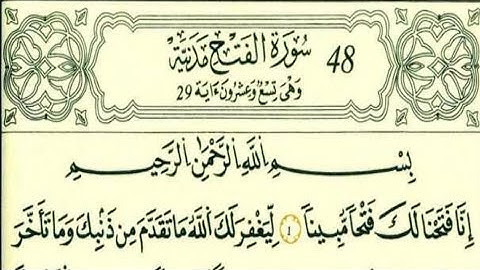 سُورَةُ الْفَتْحِ مَدَنِيَّة 48
وَهْىَ تِسْعٌ وَعِشْرُونَ ءَايَة 29
بِسْمِ اِ۬للَّهِ اِ۬لرَّحْمَٰنِ اِ۬لرَّحِيمِ
إِنَّا فَتَحْنَا لَكَ فَتْحاٗ مُّبِيناٗ ١ لِّيَغْفِرَ لَكَ اَ۬للَّهُ مَا تَقَدَّمَ مِن ذَنۢبِكَ وَمَا تَأَخَّرَ